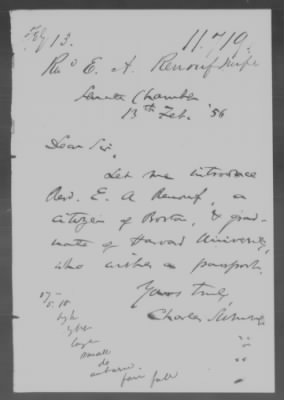 Feby 13.
11.719.
Revd E. A. Renouf
Senate Chamber
13th Feb. '56
Dear Sir,
Let me introduce
Rev. E. A. Renouf, a
citizen of Boston, & grad-
uate of Harvard University,
who wishes a passport.
Yours truly,
Charles Sumner
37 -
5.10
high
large
small
do
auburn
fair full